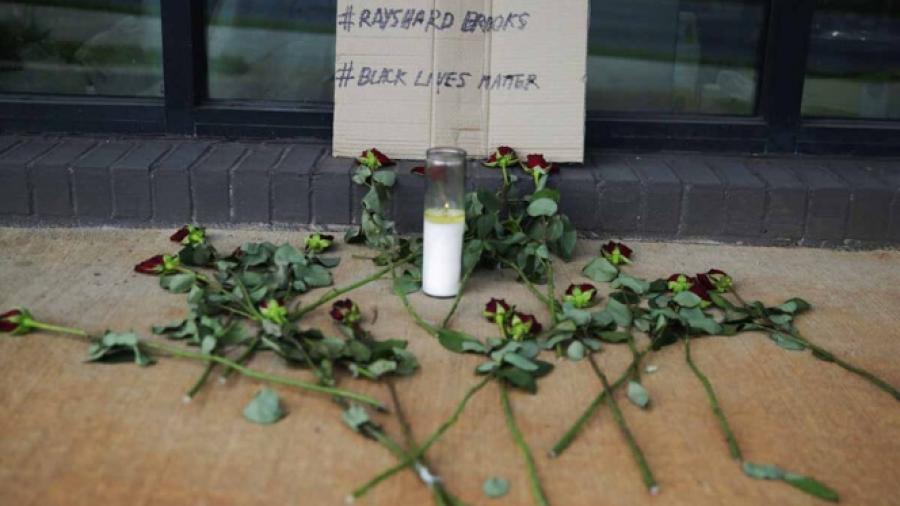 #RAYSHARD BROOKS
#BLACK LIVES MATTER